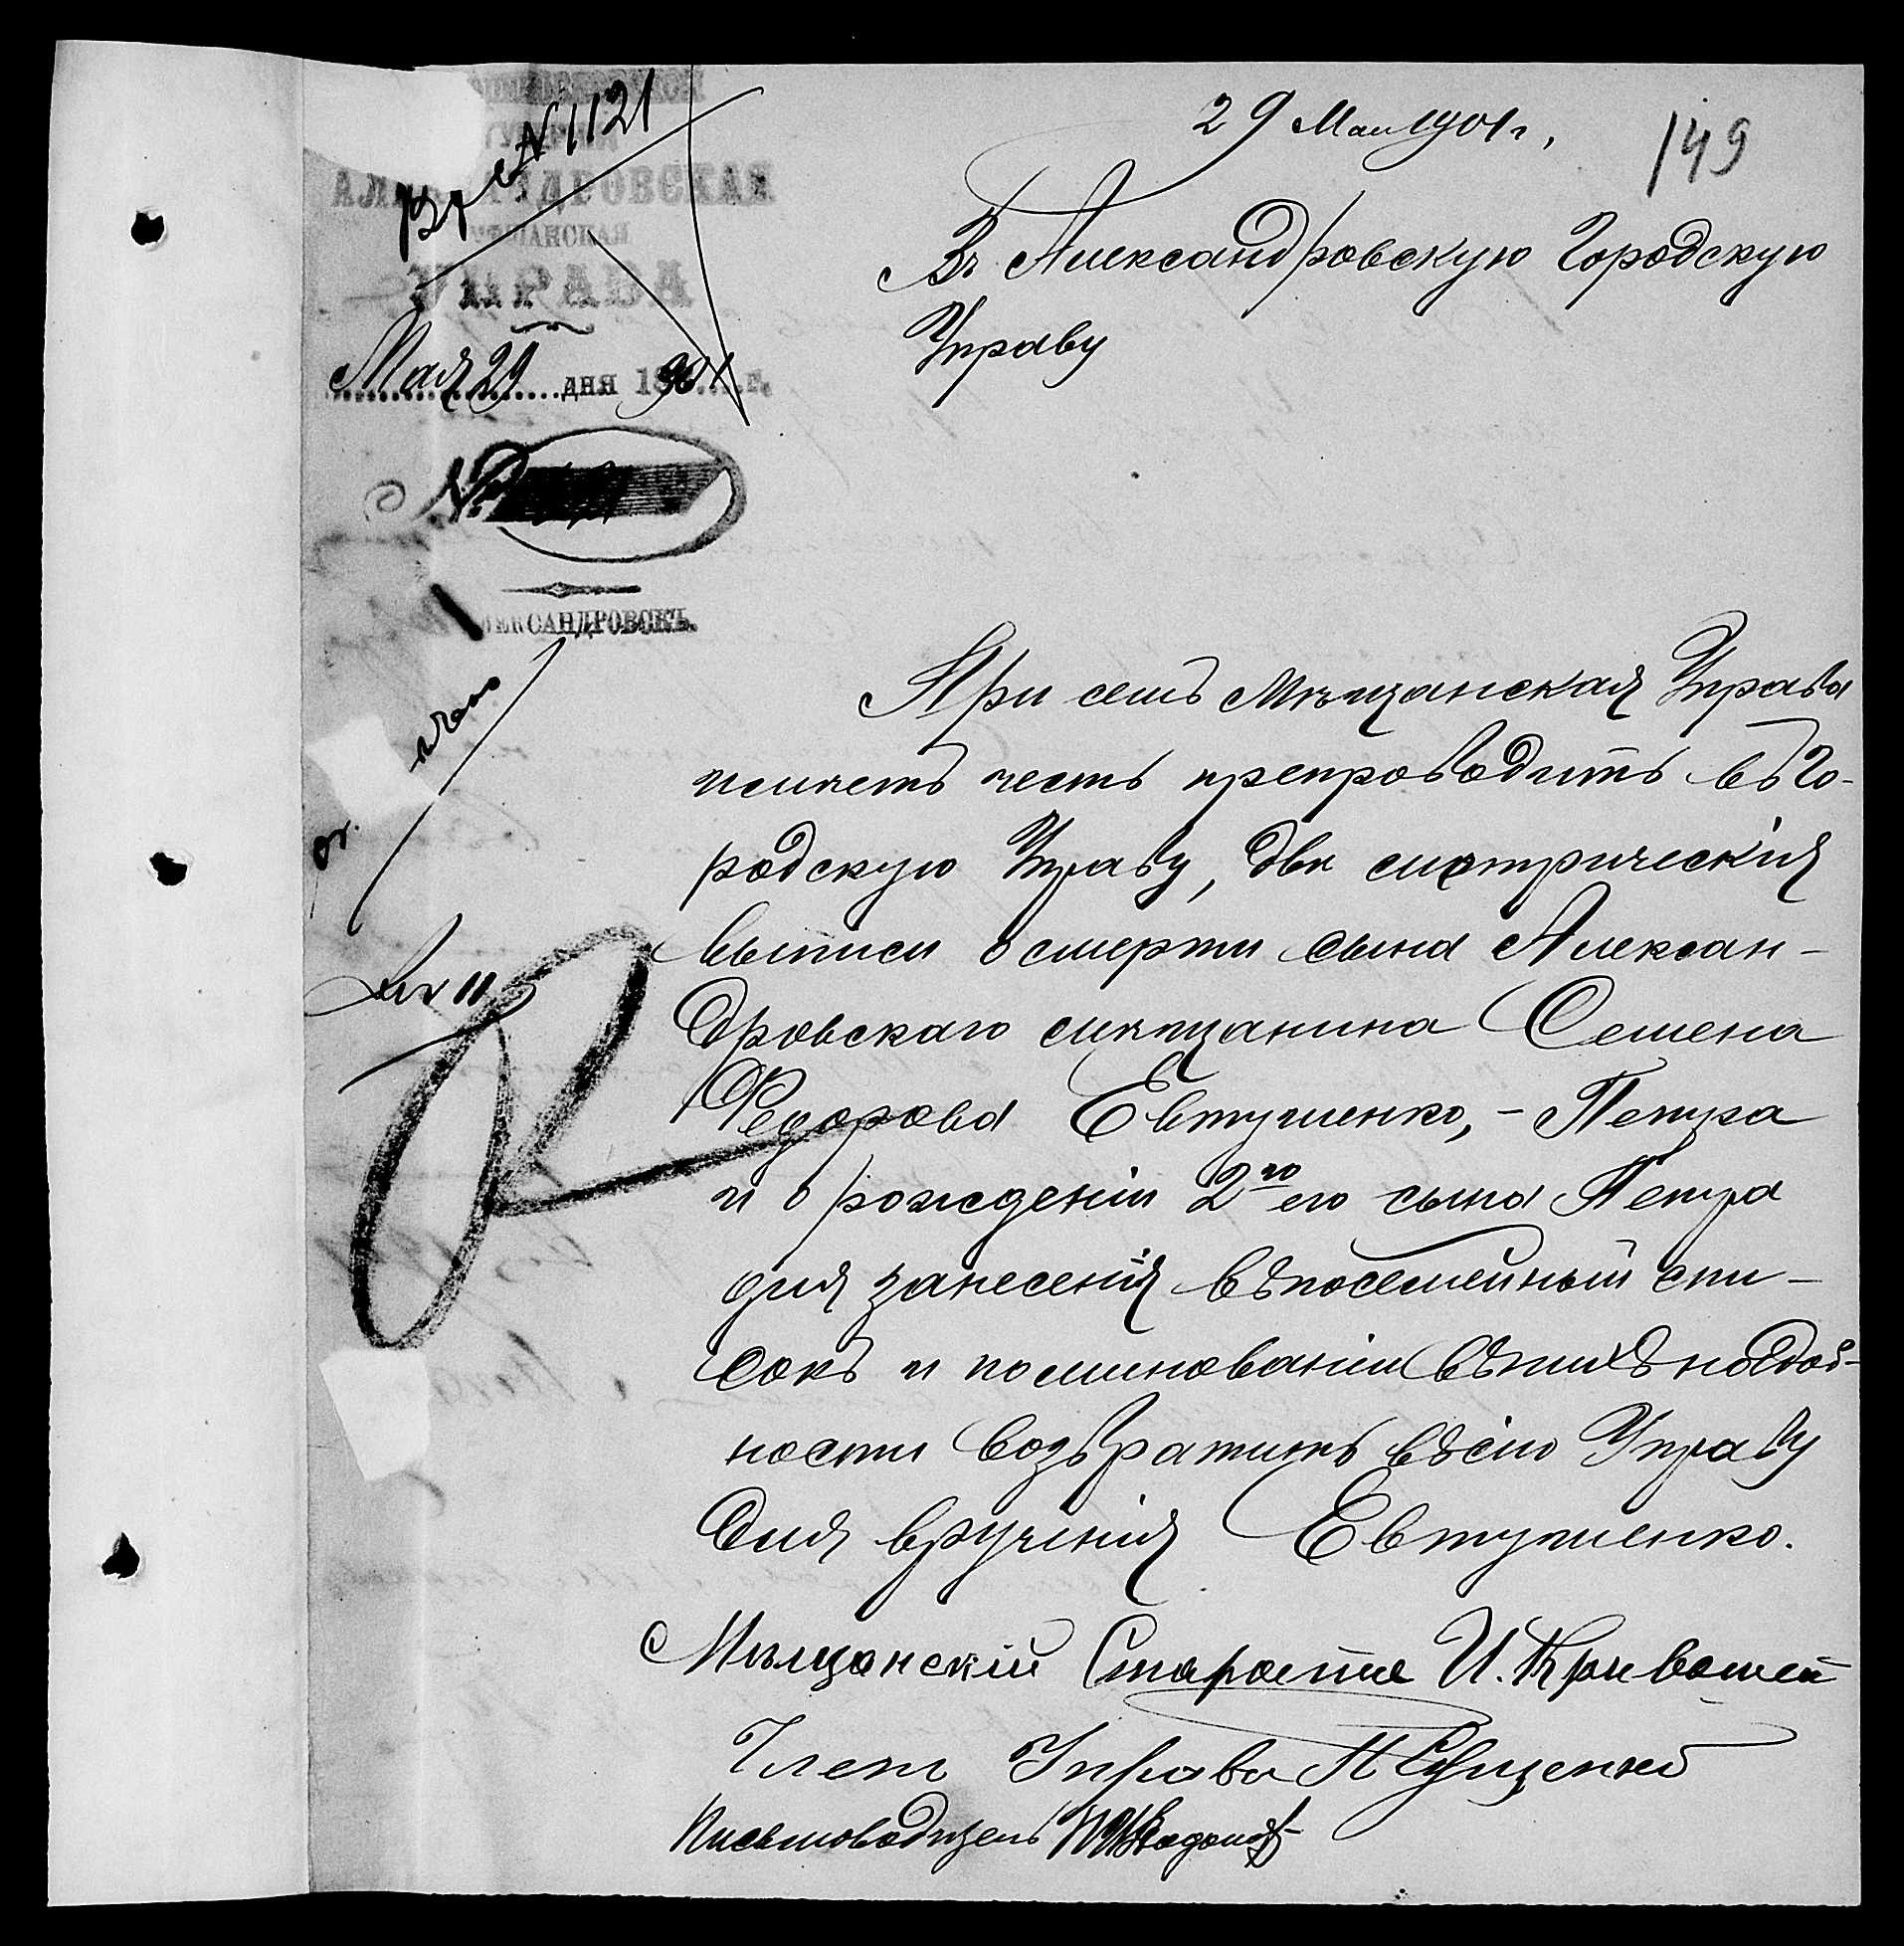 № 1121
29 Мая 1901 г.
149
АЛЕКСАНДРОВСКАЯ
МѢЩАНСКАЯ
УПРАВА
Мая 29 дня 1901 г.
№
АЛЕКСАНДРОВСКЪ.
Въ Александровскую Городскую
Управу
При семъ Мѣщанская Управа
имѣетъ честь препроводить въ Го-
родскую Управу, двѣ метрическія
выписи о смерти сына Алексан-
дровскаго мѣщанина Семена
Федорова Евтушенко, - Петра
и о рожденіи 2го его сына Петра
для занесенія въ посемейный спи-
сокъ и по минованіи въ нихъ надоб-
ности возвратить въ сію Управу
для врученія Евтушенко.
Мѣщанскій Староста И. Кривошей
Членъ Управы
Письмоводитель